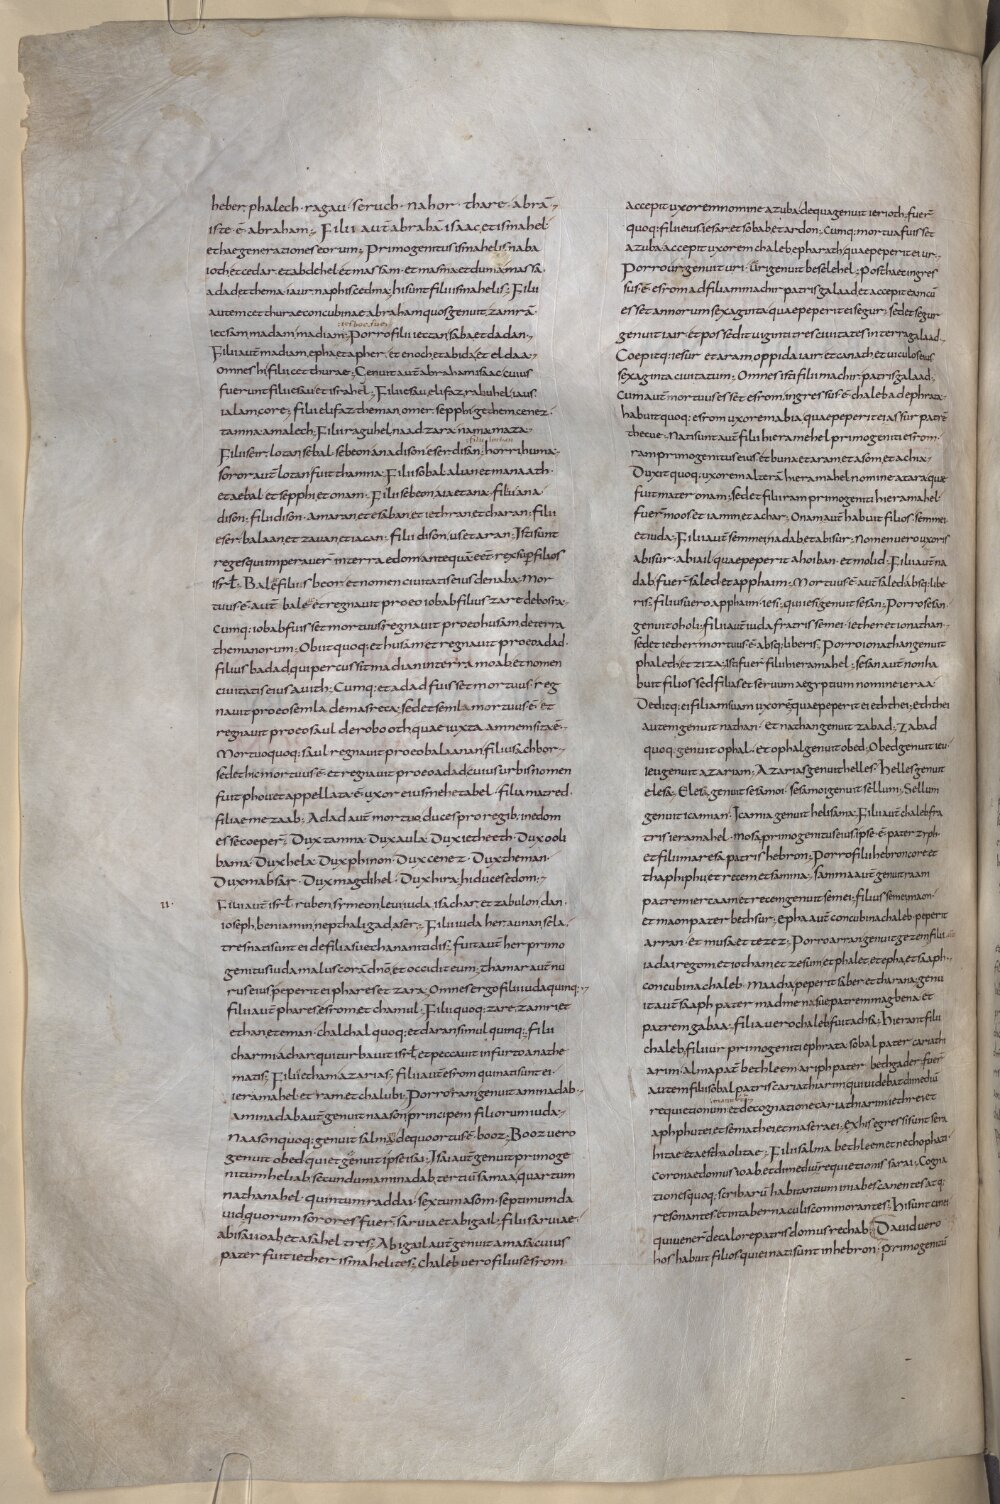 heber, phalech · ragau · seruch · nahor · thare · abrā
iste ē abraham; Filii aut̄ abrahā isaac, et ismahel
et hae generationes eorum; Primogenitus ismahelis naba
ioth et cedar · et abdehel et massam · et masma et duma massa
adad et thema · iaur · naphis cedma, hi sunt filii ismahelis; Filii
autem cethurae concubinae abraham quos genuit, zamrā
iecsam madam, madiam; Porro filii iectan saba et dadan
Filii aut̄ madiam, epha, et apher, et enoch et abida, et eldaa
omnes hi filii cethurae; Genuit aut̄ abraham isaac, cuius
fuerunt filii esau et israhel; Filii esau, elifaz, rahuhel, iaus
ialam core; filii elifaz theman omer · sepphi gethem cenez
tamna amalech; Filii raguhel naad zara · nama maza
Filii seir, lotan sebal sebeon ana dison eser disan; horri huma
soror aut̄ lotan fuit thamna; Filii sobal alian et manaath
et aebal et sepphi et onam; Filii sebeon aia et ana · filii ana
dison; filii dison · amaran et esaban, et iethran et charan; filii
eser balaan et zavan et iacan · filii dison, us et aran; Isti sunt
reges qui imperaver̄ in terra edom antequā eēt rex sup filios
isrl; Bale filius beor, et nomen civitatis eius denaba; Mor
tuus ē aut̄ bale et regnavit pro eo iobab filius zare de bosra
Cumq; iobab fuisset mortuus regnavit pro eo husam de terra
themanorum; Obiit quoq; et husam et regnavit pro eo adad
filius badad qui percussit madian in terra moab, et nomen
civitatis eius avith; Cumq; et adad fuisset mortuus reg
navit pro eo semla de masreca; sed et semla mortuus ē · et
regnavit pro eo saul de rooboth quae iuxta amnem sita ē
Mortuo quoq; saul regnavit pro eo balaanan filius achbor
sed et hic mortuus ē et regnavit pro eo adad cuius urbis nomen
fuit phou et appellata ē uxor eius mehetabel · filia matred
filiae mezaab; Adad aut̄ mortuo, duces pro regib; in edom
esse coeper̄; Dux tamna · Dux aula · Dux ietheth · Dux ooli
bama · Dux hela · Dux phinon · Dux cenez · Dux theman
Dux mabsar · Dux magdihel · Dux hira · hi duces edom;
II · Filii aut̄ isrl, ruben symeon levi iuda, isachar, et zabulon dan ·
ioseph, beniamin, nepthali gad aser; Filii iuda her aunan sela
tres nati sunt ei de filia sue chananitidis; fuit aut̄ her primo
genitus iuda malus corā dno, et occidit eum; thamar aut̄ nu
rus eius peperit ei phares et zara; Omnes ergo filii iuda quinq;
filii aut̄ phares esrom et chamul; Filii quoq; zare, zamri et
ethan et eman · chalchal quoq; et dara simul quinq; filii
charmi achar, qui turbavit isrl, et peccavit in furto anathe
matis; Filii etham azarias; filii aut̄ esrom qui nati sunt ei ·
ieramahel · et ram et chalubi; Porro ram genuit aminadab
aminadab aut̄ genuit naason principem filiorum iuda
Naason quoq; genuit salma de quo ortus ē · booz; Booz vero
genuit obed qui et genuit ipse isai; Isai aut̄ genuit primoge
nitum heliab secundum aminadab, tertiū samaa quartum
nathanahel · quintum raddai · sextum asom · septimum da
vid quorum sorores fuer̄ sarvia et abigail; filii sarviae
abisai ioab et asahel tres; Abigail aut̄ genuit amasa cuius
pater fuit iether ismahelites; chaleb vero filius esrom
accepit uxorem nomine azuba de qua genuit ierioth, fuer̄
quoq; filii eius iesar et sobab et ardon; Cumq; mortua fuisset
azuba accepit uxorem chaleb epharath quae peperit ei ur;
Porro ur genuit uri · Uri genuit beselehel; Post haec ingres
sus ē esrom ad filiam machir patris galaad et accepit eam cū
esset annorum sexaginta quae peperit ei segur; sed et segur
genuit iair · et possedit viginti tres civitates in terra galaad
Coepitq; iesur et aram oppida iair et canath et viculos eius
sexaginta civitatum; Omnes isti filii machir patris galaad
Cum aut̄ mortuus esset esrom ingressus ē chaleb ad ephrata
habuit quoq; esrom uxorem abia quae peperit ei assur patrē
thecue; Nati sunt aut̄ filii hieramehel primogeniti esrom
ram primogenitus eius et buna et aram et asom et achia
Duxit quoq; uxorem alterā hieramahel nomine atara quae
fuit mater onam; sed et filii ram primogeniti hieramahel
fuer̄ moos et iamin et achar; Onam aut̄ habuit filios · semmei
et iuda; Filii aut̄ semmei nadab et abisur; Nomen vero uxoris
abisur · abiail quae peperit ahoiban · et molid · Filii aut̄ na
dab, fuer̄ saled et apphaim; Mortuus ē aut̄ saled absq; libe
ris; filius vero apphaim · iesi, qui iesi genuit sesan; Porro sesan
genuit oholi; filii aut̄ iuda fratris semei · iether et ionathan
sed et iether mortuus ē absq; liberis; Porro ionathan genuit
phaleth, et ziza; Isti fuer̄ filii hieramahel; sesan aut̄ non ha
buit filios sed filias et servum aegyptium nomine ieraa
Deditq; ei filiam suam uxorē quae peperit ei ethei; ethei
autem genuit nathan · et nathan genuit zabad; Zabad
quoq; genuit ophal · et ophal genuit obed; Obed genuit ieu
ieu genuit azariam; Azarias genuit helles; Helles genuit
elesa; Elesa genuit sesamoi · sesamoi genuit sellum; Sellum
genuit icamian · Icamia genuit helisama; Filii aut̄ chaleb fra
tris ieramahel · mosa primogenitus eius ipse ē · pater ziph
et filii maresa patris hebron; Porro filii hebron core et
thaphphu et recem et samma; samma aut̄ genuit raam
patrem iercaam et recem genuit semei; filius semei maon
et maon pater bethsur; epha aut̄ concubina chaleb peperit
arran · et musa et tezez; Porro arran genuit gezem filii
iadai regom et iotham et zesum et phalet, et epha et saaph
concubina chaleb · maacha peperit saber et tharana; genu
it aut̄ saaph pater madmena sue patrem magbena et
patrem gabaa; filia vero chaleb fuit achsa; hi erant filii
chaleb, filii ur primogeniti ephrata sobal pater cariath
iarim · salma pat̄ bethleem ariph pater bethgader fuer̄
autem filii sobal patris cariathiarim qui videbat dimediū
requietionum; et de cognatione cariathiarim iethrei et
aphphutei et semathei et maserei; ex his egressi sunt sara
hitae et aesthaolitae; Filii salma bethleem et netophati
corona e domus ioab, et dimediū requietionis sarai; Cogna
tiones quoq; scribarū habitantium in iabes canentes atq;
resonantes et in tabernaculis commorantes; hi sunt cinei
qui vener̄ de calore patris domus rechab; David vero
hos habuit filios qui ei nati sunt in hebron; primogenitū